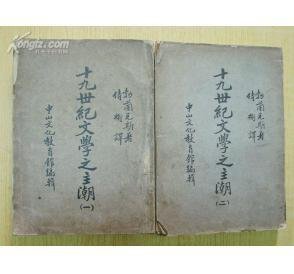 勃蘭兌斯著
侍桁譯
十九世紀文學之主潮
(一)
中山文化教育館編輯
勃蘭兌斯著
侍桁譯
十九世紀文學之主潮
(二)
中山文化教育館編輯